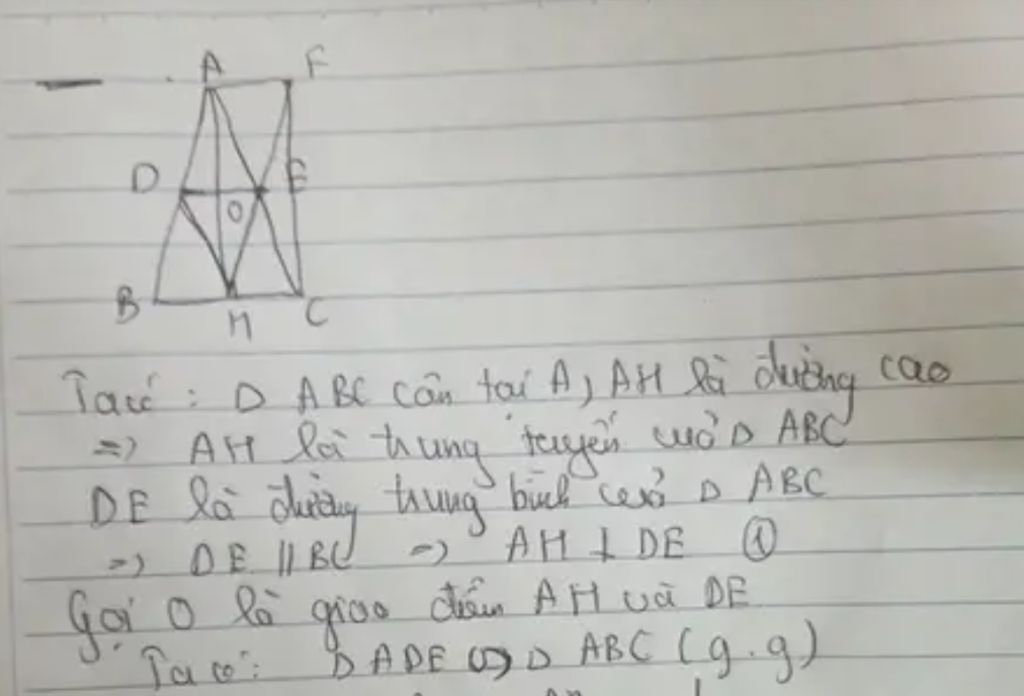 A F
D E
O
B H C
Ta có : Δ ABC cân tại A, AH là đường cao
=> AH là trung tuyến của Δ ABC
DE là đường trung bình của Δ ABC
=> DE // BC => AH ⊥ DE ①
Gọi O là giao điểm AH và DE
Ta có: Δ ADE ∽ Δ ABC (g.g)